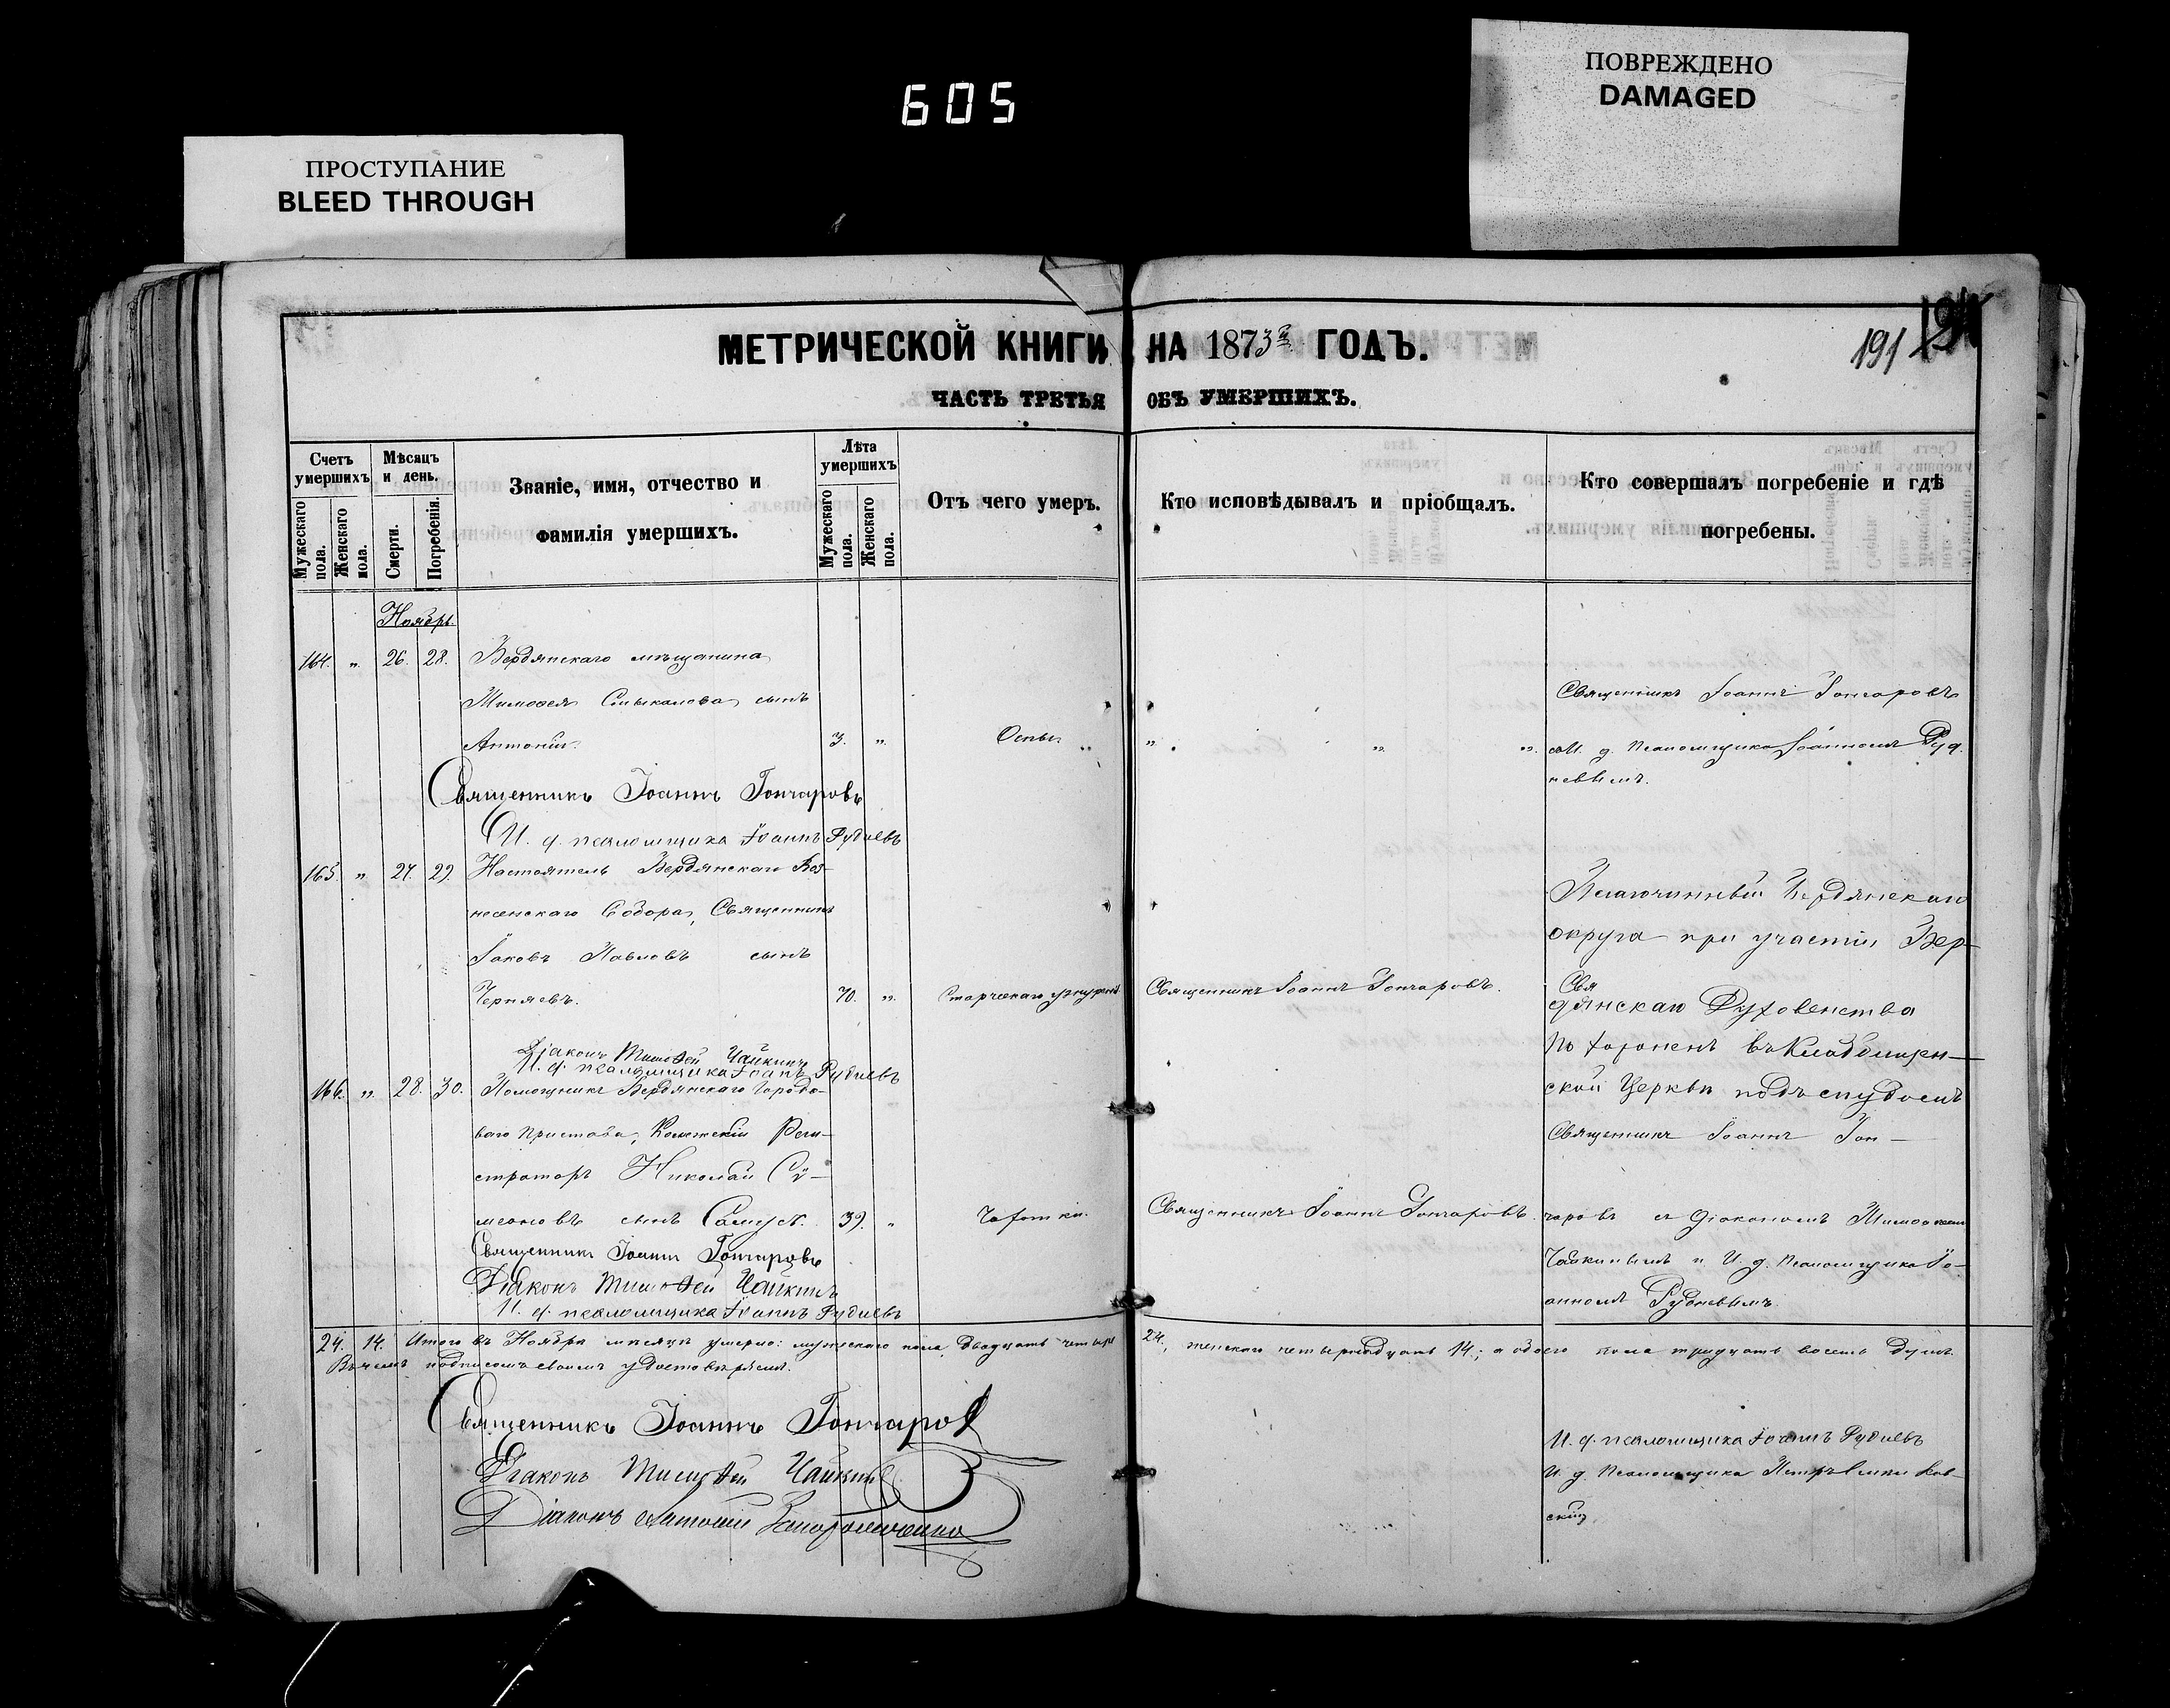 605
ПРОСТУПАНИЕ
BLEED THROUGH
ПОВРЕЖДЕНО
DAMAGED
МЕТРИЧЕСКОЙ КНИГИ НА 1873й ГОДЪ.
191
ЧАСТЬ ТРЕТЬЯ ОБЪ УМЕРШИХЪ.
Счетъ умершихъ
Мужескаго пола.
Женскаго пола.
Мѣсяцъ и день.
Смерти.
Погребенія.
Званіе, имя, отчество и
фамилія умершихъ.
Лѣта умершихъ
Мужескаго пола.
Женскаго пола.
Отъ чего умеръ.
Кто исповѣдывалъ и пріобщалъ.
Кто совершалъ погребеніе и гдѣ
погребены.
Ноябрь.
164. „ 26. 28. Бердянскаго мѣщанина
Тимофея сынъ
Антоній. 3. „ Оспы „ „ „ „
Священникъ Іоаннъ Гончаровъ
И. д. псаломщика Іоанномъ Руд-
невымъ.
Священникъ Іоаннъ Гончаровъ
И. д. псаломщика Іоаннъ Рудневъ
165. „ 27. 29. Настоятель Бердянскаго Воз-
несенскаго Собора, Священникъ
Іаковъ Павловъ сынъ
Черняевъ. 70. „ Старческаго Священникъ Іоаннъ Гончаровъ.
Благочинный Бердянскаго
округа при участіи Бер-
Свя
дянскаго Духовенства
Похороненъ въ Кладбищен-
ской Церкви подъ спудомъ
Діаконъ Тимофей Чайкинъ
И. д. псаломщика Іоаннъ Рудневъ
166. „ 28. 30. Помощникъ Бердянскаго Городо-
ваго Пристава, Коллежскій Реги-
страторъ Николай Сѵ-
меоновъ сынъ 39. „ Чахотки. Священникъ Іоаннъ Гончаровъ.
Священникъ Іоаннъ Гон-
чаровъ съ Діакономъ Тимофеемъ
Чайкинымъ и И. д. Псаломщика Іо-
анномъ Рудневымъ.
Священникъ Іоаннъ Гончаровъ
Діаконъ Тимофей Чайкинъ
И. д. псаломщика Іоаннъ Рудневъ
24. 14. Итого въ Ноябрѣ мѣсяцѣ умерло: мужескаго пола двадцать четыре 24, женскаго четырнадцать 14; а обоего пола тридцать восемь душъ.
Въ чемъ подписомъ своимъ удостовѣряемъ.
Священникъ Іоаннъ Гончаровъ
Діаконъ Тимофей Чайкинъ
Діаконъ
И. д. псаломщика Іоаннъ Рудневъ
И. д. Псаломщика Петръ
скій